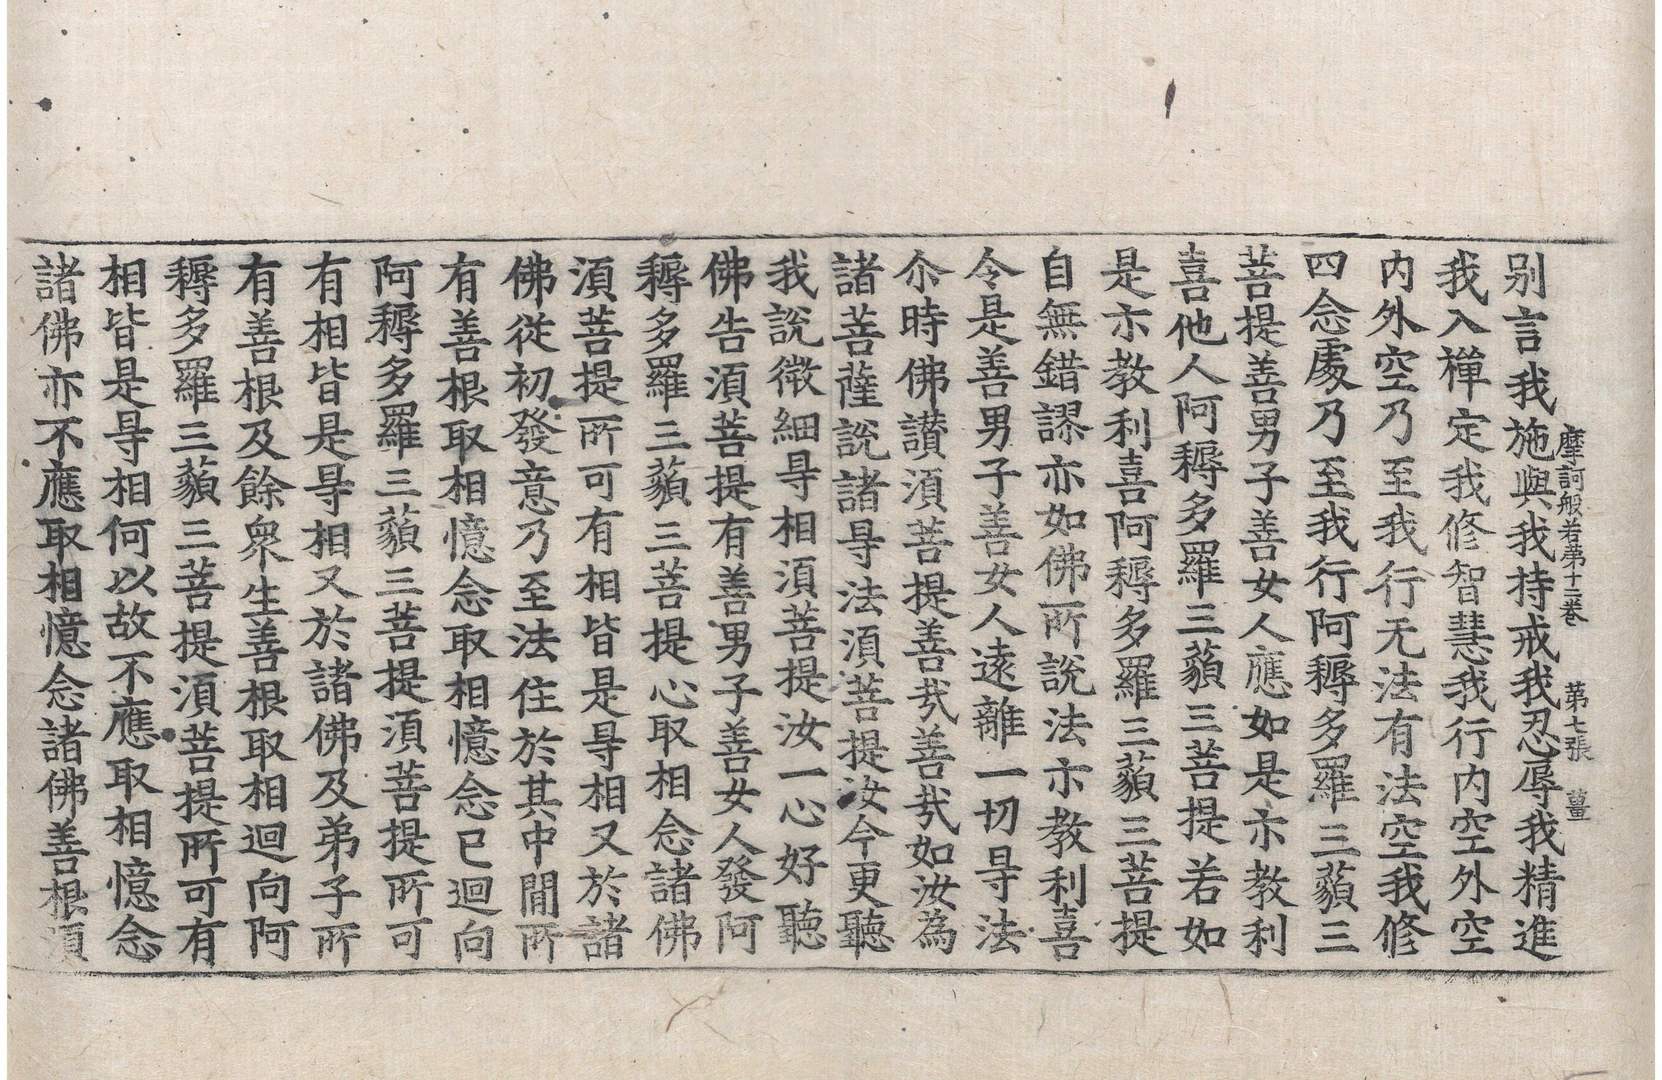 摩訶般若第十二卷 第七張 薑
别言我施與我持戒我忍辱我精進
我入禪定我修智慧我行内空外空
内外空乃至我行无法有法空我修
四念處乃至我行阿耨多羅三藐三
菩提善男子善女人應如是示教利
喜他人阿耨多羅三藐三菩提若如
是示教利喜阿耨多羅三藐三菩提
自無錯謬亦如佛所說法示教利喜
令是善男子善女人遠離一切㝵法
尒時佛讃須菩提善㢤善㢤如汝為
諸菩薩說諸㝵法須菩提汝今更聽
我說微細㝵相須菩提汝一心好聽
佛告須菩提有善男子善女人發阿
耨多羅三藐三菩提心取相念諸佛
須菩提所可有相皆是㝵相又於諸
佛從初發意乃至法住於其中間所
有善根取相憶念取相憶念已迴向
阿耨多羅三藐三菩提須菩提所可
有相皆是㝵相又於諸佛及弟子所
有善根及餘衆生善根取相迴向阿
耨多羅三藐三菩提須菩提所可有
相皆是㝵相何以故不應取相憶念
諸佛亦不應取相憶念諸佛善根須